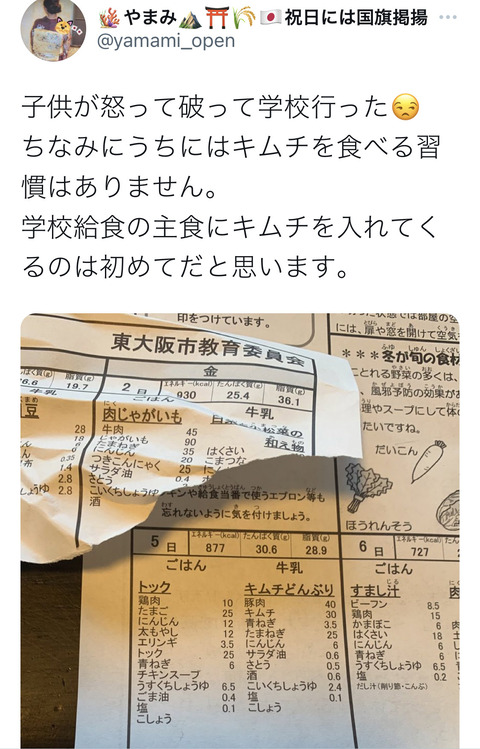 やまみ 祝日には国旗掲揚
@yamami_open
子供が怒って破って学校行った😒
ちなみにうちにはキムチを食べる習
慣はありません。
学校給食の主食にキムチを入れてく
るのは初めてだと思います。
印をつけています。
東大阪市教育委員会
金
2日
エネルギー(kcal) たんぱく質(g) 脂質(g)
930 25.4 36.1
ごはん 牛乳
肉じゃがいも
牛肉 45
じゃがいも 90
たまねぎ 35
にんじん 20
つきこんにゃく 25
サラダ油 0.4
さとう
こいくちしょうゆ
酒
松菜の
和え物
はくさい
こまつな
19.7
牛乳
豆
28
18
6
0.35
1.4
2.8
2.8
キンや給食当番で使うエプロン等も
忘れないように気を付けましょう。
には、扉や窓を開けて空気
***冬が旬の食材
とれる野菜の多くは、
風邪予防の効果が
理やスープにして体
たいですね。
だいこん
ほうれんそう
5日
エネルギー(kcal) たんぱく質(g) 脂質(g)
877 30.6 28.9
ごはん 牛乳
トック
鶏肉 10
たまご 25
にんじん 12
太もやし 12
エリンギ 3.5
トック 25
青ねぎ 6
チキンスープ
うすくちしょうゆ 6.5
ごま油 0.4
塩 0.1
こしょう
キムチどんぶり
豚肉 40
キムチ 30
青ねぎ 3.5
たまねぎ 25
サラダ油 0.6
さとう 0.5
酒 0.6
こいくちしょうゆ 2.4
塩 0.1
こしょう
6日
エネルギー(kcal) たんぱく質
727
ごはん
すまし汁
ビーフン 8.5
鶏肉 15
かまぼこ 6
はくさい 18
にんじん 6
青ねぎ 6
うすくちしょうゆ 6.5
塩 0.2
だし汁(削り節・こんぶ)